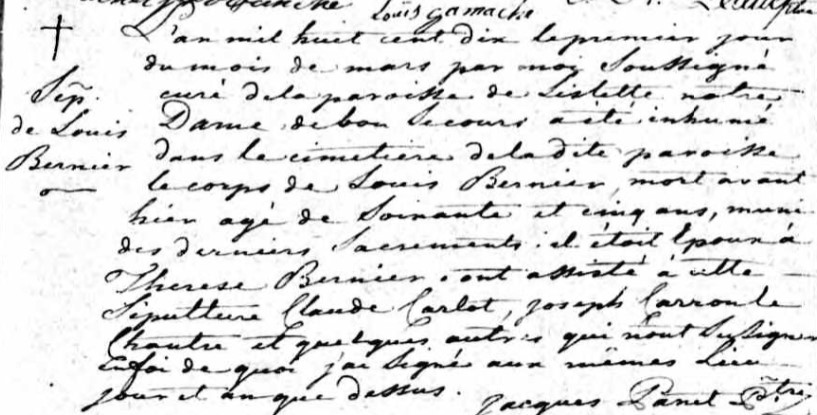 Louis gamache
L'an mil huit cent dix le premier jour
du mois de mars par moy Soussigné
Sep. curé de la paroisse de Lislette notre
de Louis Dame de bon Secours a été inhumé
Bernier dans le cimetiere de la dite paroisse
le corps de Louis Bernier, mort avant
hier agé de Soixante et cinq ans, muni
des derniers Sacrements. il était Epoux à
Therese Bernier. ont assisté à cette
Sépulture Claude Carlot, joseph Carron le
Chantre et quelques autres qui n'ont Su Signer
En foi de quoi j'ai Signé aux mêmes Lieu
jour et an que dessus. jacques Panet Ptre